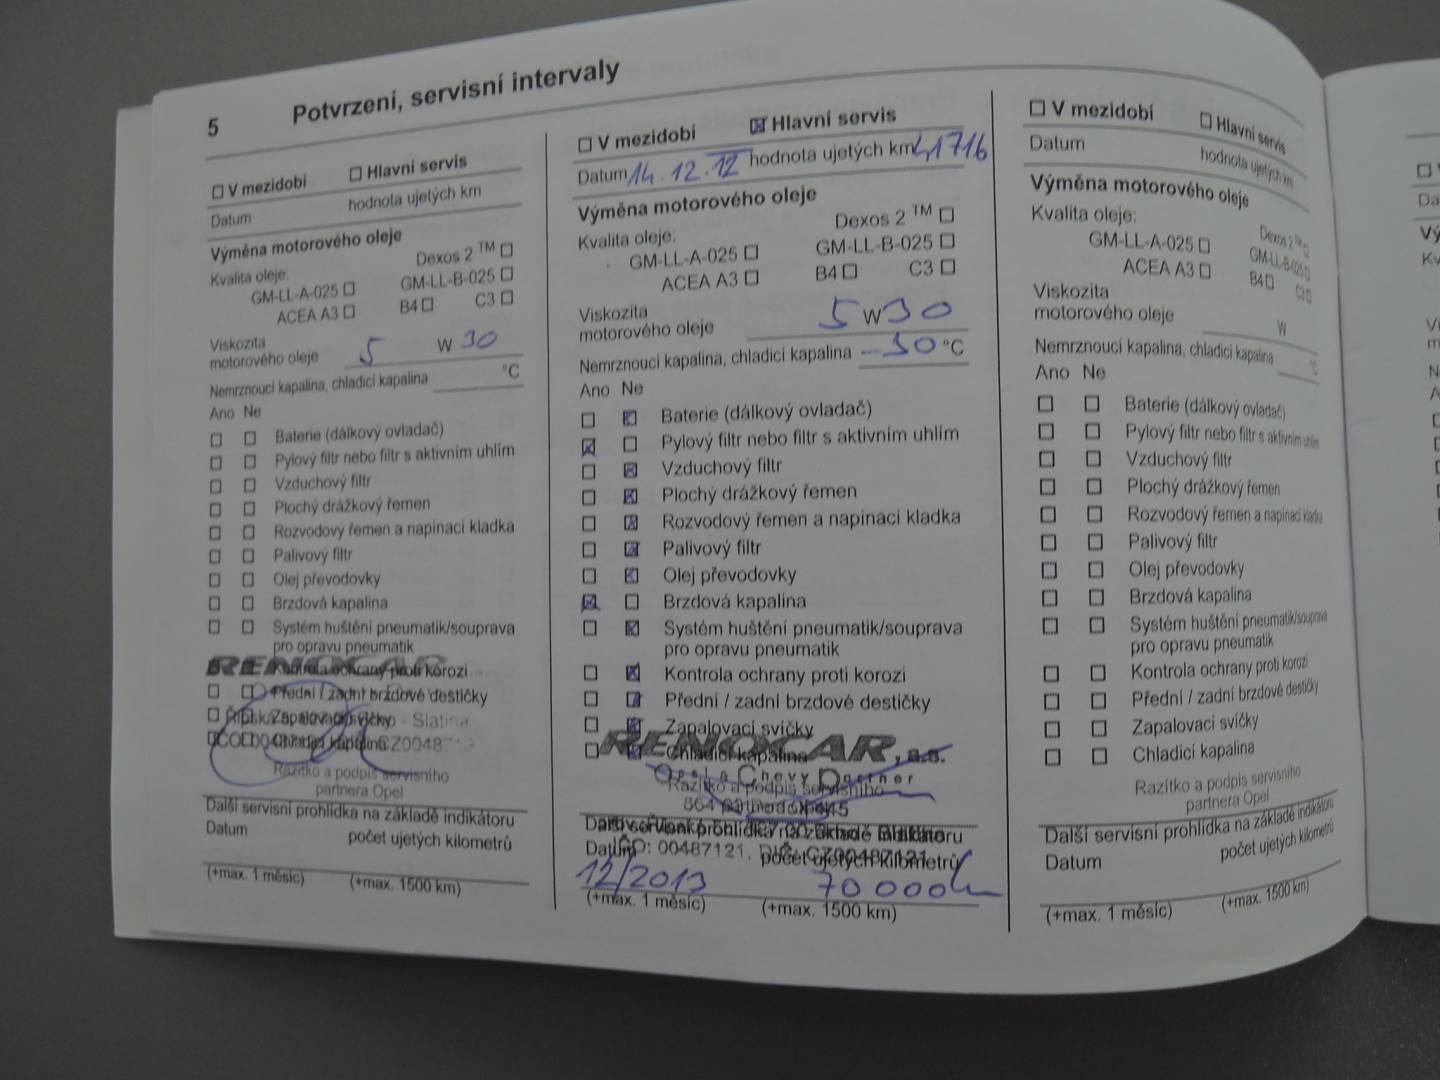 5 Potvrzení, servisní intervaly
☐ V mezidobí ☐ Hlavní servis
Datum hodnota ujetých km
Výměna motorového oleje
Kvalita oleje: Dexos 2 TM ☐
GM-LL-A-025 ☐ GM-LL-B-025 ☐
ACEA A3 ☐ B4 ☐ C3 ☐
Viskozita
motorového oleje 5 W 30
Nemrznoucí kapalina, chladicí kapalina °C
Ano Ne
☐ ☐ Baterie (dálkový ovladač)
☐ ☐ Pylový filtr nebo filtr s aktivním uhlím
☐ ☐ Vzduchový filtr
☐ ☐ Plochý drážkový řemen
☐ ☐ Rozvodový řemen a napínací kladka
☐ ☐ Palivový filtr
☐ ☐ Olej převodovky
☐ ☐ Brzdová kapalina
☐ ☐ Systém huštění pneumatik/souprava
pro opravu pneumatik
RENOCAR
Kontrola ochrany proti korozi
☐ ☐ Přední / zadní brzdové destičky
☐ Zapalovací svíčky
- Slatina
Chladicí kapalina
Razítko a podpis servisního
partnera Opel
Další servisní prohlídka na základě indikátoru
Datum počet ujetých kilometrů
(+max. 1 měsíc) (+max. 1500 km)
☐ V mezidobí ☒ Hlavní servis
Datum 14.12.12 hodnota ujetých km 41716
Výměna motorového oleje
Kvalita oleje: Dexos 2 TM ☐
GM-LL-A-025 ☐ GM-LL-B-025 ☐
ACEA A3 ☐ B4 ☐ C3 ☐
Viskozita
motorového oleje 5 W 30
Nemrznoucí kapalina, chladicí kapalina -30 °C
Ano Ne
☐ ☒ Baterie (dálkový ovladač)
☒ ☐ Pylový filtr nebo filtr s aktivním uhlím
☐ ☒ Vzduchový filtr
☐ ☒ Plochý drážkový řemen
☐ ☒ Rozvodový řemen a napínací kladka
☐ ☒ Palivový filtr
☐ ☒ Olej převodovky
☒ ☐ Brzdová kapalina
☐ ☒ Systém huštění pneumatik/souprava
pro opravu pneumatik
☐ ☒ Kontrola ochrany proti korozi
☐ ☒ Přední / zadní brzdové destičky
☐ ☒ Zapalovací svíčky
RENOCAR, a.s.
☐ ☒ Chladicí kapalina
Opel a Chevy Partner
Razítko a podpis servisního
partnera Opel
Další servisní prohlídka na základě indikátoru
Datum IČO: 00487121, DIČ: CZ00487121
počet ujetých kilometrů
12/2013 70 000
(+max. 1 měsíc) (+max. 1500 km)
☐ V mezidobí ☐ Hlavní servis
Datum hodnota ujetých km
Výměna motorového oleje
Kvalita oleje: Dexos 2 TM ☐
GM-LL-A-025 ☐ GM-LL-B-025 ☐
ACEA A3 ☐ B4 ☐ C3 ☐
Viskozita
motorového oleje W
Nemrznoucí kapalina, chladicí kapalina °C
Ano Ne
☐ ☐ Baterie (dálkový ovladač)
☐ ☐ Pylový filtr nebo filtr s aktivním uhlím
☐ ☐ Vzduchový filtr
☐ ☐ Plochý drážkový řemen
☐ ☐ Rozvodový řemen a napínací kladka
☐ ☐ Palivový filtr
☐ ☐ Olej převodovky
☐ ☐ Brzdová kapalina
☐ ☐ Systém huštění pneumatik/souprava
pro opravu pneumatik
☐ ☐ Kontrola ochrany proti korozi
☐ ☐ Přední / zadní brzdové destičky
☐ ☐ Zapalovací svíčky
☐ ☐ Chladicí kapalina
Razítko a podpis servisního
partnera Opel
Další servisní prohlídka na základě indikátoru
Datum počet ujetých kilometrů
(+max. 1 měsíc) (+max. 1500 km)